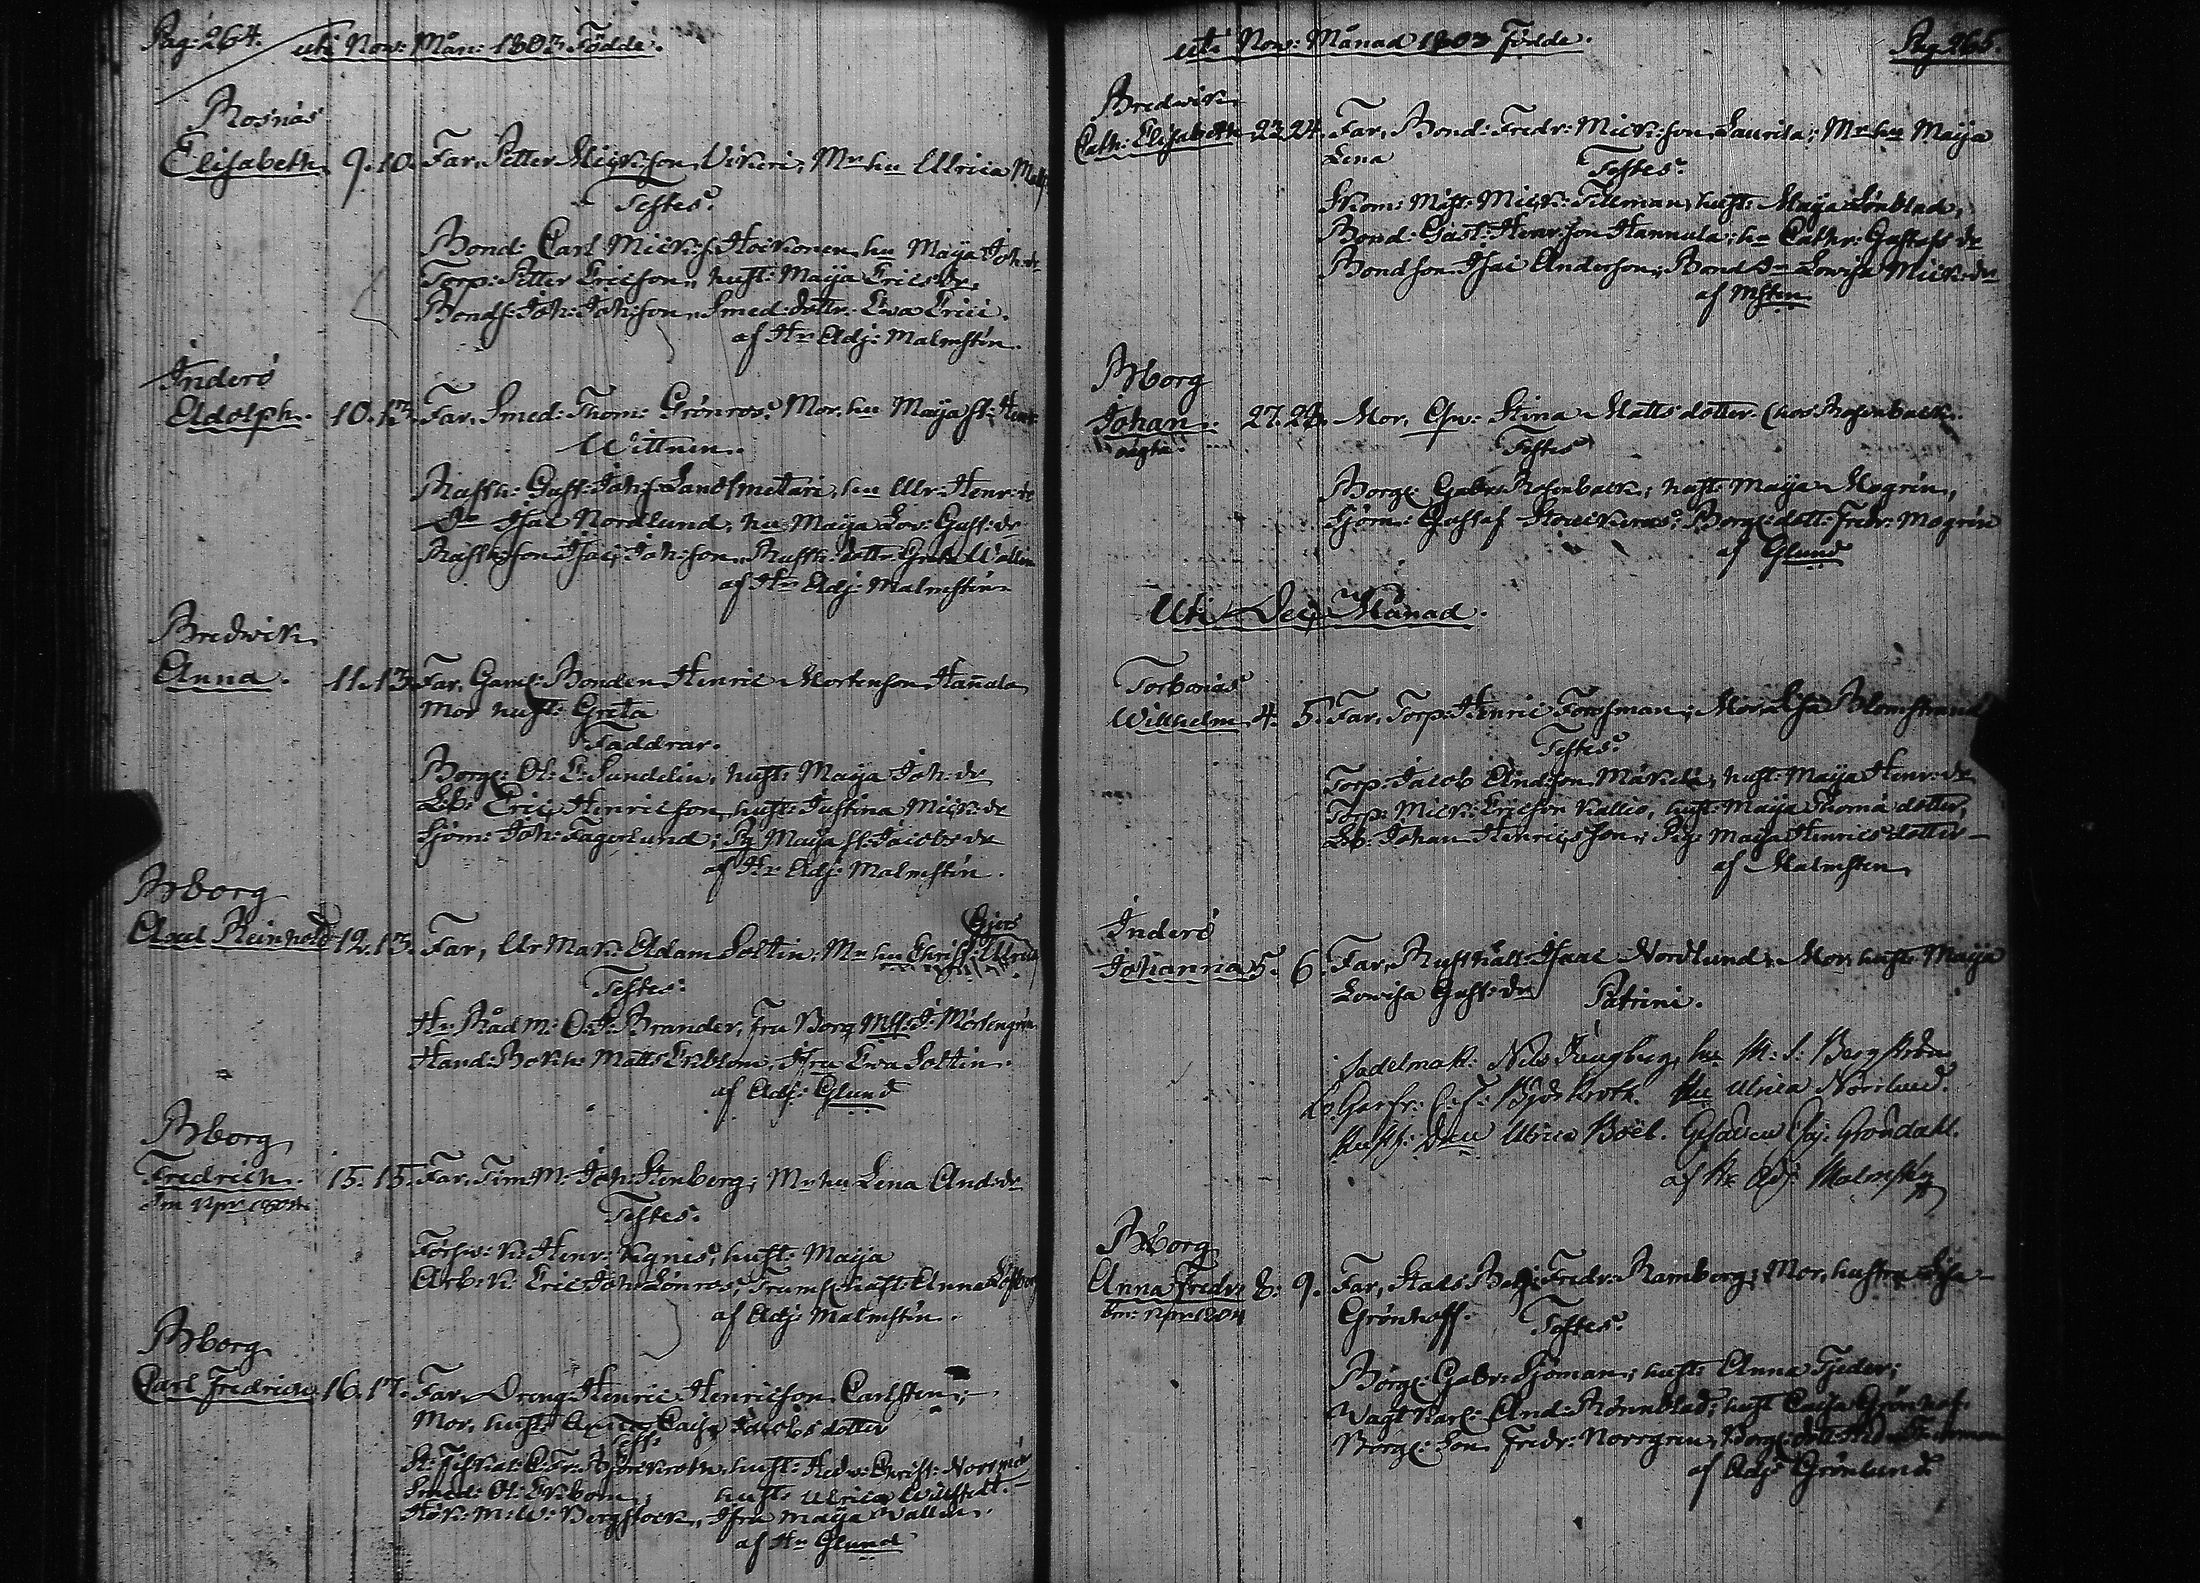 Pag: 264. uti Nov: Mån: 1803 Födde.
Rosnäs
Elisabeth. 9. 10. Far, Petter Mick:son Vikeri, Mr hu Ulrica
Testes.
Bond: Carl Mick:s Hoikonen hu Maija Joh:dr
Torp: Petter Ericson, hust: Maija Ericsdr
Bonds: Joh: Joh:son, Smed:dottr Ewa Erici.
af Hr Adj: Malmstén.
Inderö
Adolph. 10. 13. Far, Smed: Thom: Grönros. Mor, hu Maija St:
Wittnen.
Rusth: Gust: Joh:s Landtmetari, hu Ulr: Henr:dr
Do Isac Nordlund, hu Maija Lov: Gust:dr
Rusth:son Isac Joh:son, Rusth:dottr Greta Wallin
af Hr Adj: Malmstén
Bredwik
Anna. 11. 13. Far, Gaml: Bonden Henric Mortenson Hanula
Mor hust: Greta
Faddrar.
Borg: Ol: E: Sundelin, hust: Maija Joh:dr
Eric Henricson, hust: Justina Mick:dr
Sjöm: Joh: Fagerlund; Pig Maija St: Jacobs dr
af Hr Adj: Malmstén.
Bborg
Axel Reinhold 12. 13. Far, UrMak: Adam Soltin: Mr hu Christ: Ulrica
Testes:
Hr Rådm: O: J: Brander, Fru Borg Mst: J: Mörtengren
Hand: Bokh: Matts Ekblom, Jfru Ewa Soltin.
af Adj: Glund
Bborg
Fredrich. 15. 15. Far, TimM: Joh: Stenberg; Mr hu Lena And:dr
Testes.
Försw: K: Henr: Kignis, hust: Maija
Arb: K: Eric Joh: Lönros, Trumsl: hust: Anna
af Adj: Malmstén.
Bborg
Carl Fredrich 16. 17. Far, Dreng: Henric Henricson Carlsten;
Mor, hust: Caisa Jacobsdotter
Test:
St: Fiskal: C: Fr: Björkroth, hust: Hedv: Christ:
Smed: Ol: Ekbom; hust: Ulrica
Hök: M: W: Bergstock, Jfru Maija Wallin.
af Hr Glund
uti Nov: Månad 1803 Födde. Pag 265.
Bredwik
Cath: Elisabeth 23. 24. Far, Bond: Fredr: Mick:son Laurila; Mr hu Maija
Lena
Testes.
Skom: Mäst: Mick: Tillman, hust: Maija Lönblad,
Bond: Gust: Henr:son Hannula; hu Cathr: Gustafs dr
Bondson Isac Anderson, Bond Dr Lowisa Mick:dr
af Msten
Bborg
Johan. 27. 28. Mor, Stina Mattsdotter (hos Rosenback.
oägta.
Testes
Borg: Gabr: Rosenback; hust: Maija Mogrén,
Sjöm: Gustaf Borg: dott: Fredr: Mogrén
af Glund
Uti Dec: Månad.
Torbonäs
Wilhelm 4. 5. Far, Torp: Henric Forssman; Mor, Lisa Blomstrand
Testes.
Torp: Jacob And:son Märkilä, hust: Maija Henr:dr
Torp: Mick: Ericson Kallio, hust: Maija Thoma dotter,
Johan Henricsson; Pig: Maija Henricsdotter
af Malmsten
Inderö
Johanna 5. 6. Far, Rusthåll: Isaac Nordlund, Mor, hust: Maija
Lowisa Gust:dr
Patrini.
Sadelmak: Nils Ljungberg, hu M: S: Bergström
Björkroth. hu Ulrica Norrlund.
Ulrica Boëll. Gesällen Grondahl.
af Hr Adj: Malmstén
Bborg
Anna Fredr: 8. 9. Far, Stads Fredr: Ramberg; Mor, hustru Lisa
Grönhoff.
Testes.
Borg: Gabr: Sjöman; hust: Anna Tjeder;
Wagtkarl: And: Rönnblad; hust: Caisa Grönhof.
Borg: Son Fredr: Norrgren,
af Adj: Grönlund